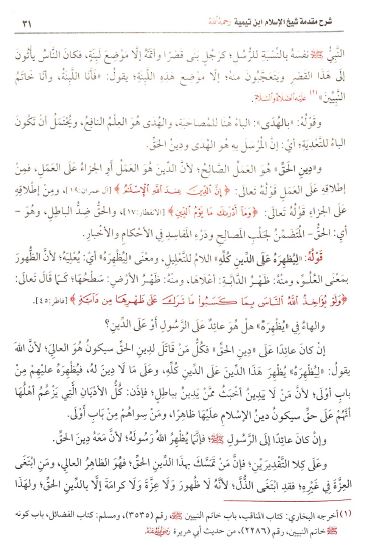 شرح مقدمة شيخ الإسلام ابن تيمية رحمه الله ٣١
النَّبِيُّ ﷺ نفسَهُ بالنِّسْبَةِ للرُّسُلِ؛ كَرَجُلٍ بَنَى قصْرًا وأتمَّهُ إلَّا مَوْضِعَ لَبِنَةٍ، فكَانَ النَّاسُ يأتُونَ
إلَى هذَا القَصْرِ ويتعَجَّبُونَ منهُ؛ إلَّا مَوْضِعَ هذِهِ اللَّبِنَةِ؛ يقولُ: «فأنَا اللَّبِنَةُ، وأنَا خَاتَمُ
النَّبِيِّينَ»(١) عليه الصلاة والسلام.
وقولُهُ: «بالهُدَى»: الباءُ هُنَا للمُصاحَبَةِ، والهُدَى هُوَ العِلْمُ النافِعُ، ويُحْتَمَلُ أنْ تَكُونَ
الباءُ للتَّعدِيَةِ؛ أيْ: إنَّ المُرْسَلَ بِهِ هُوَ الهُدَى ودِينُ الحقِّ.
و«دِينِ الحَقِّ» هُوَ العمَلُ الصَّالِحُ؛ لأنَّ الدِّينَ هُوَ العمَلُ أوِ الجزَاءُ عَلَى العمَلِ، فمِنْ
إطلاقِهِ عَلَى العمَلِ قَوْلُهُ تَعالَى: ﴿إِنَّ الدِّينَ عِندَ اللَّهِ الْإِسْلَامُ﴾ [آل عمران:١٩]، ومِنْ إطلاقِهِ
عَلَى الجزَاءِ قَوْلُهُ تَعالَى: ﴿وَمَا أَدْرَاكَ مَا يَوْمُ الدِّينِ﴾ [الانفطار:١٧]، والحقُّ ضِدُّ الباطِلِ، وهُوَ -
أيِ: الحقُّ- المُتَضَمِّنُ لجَلْبِ المصالِحِ ودَرْءِ المفاسِدِ فِي الأحكامِ والأخبارِ.
قولُهُ: «لِيُظْهِرَهُ عَلَى الدِّينِ كُلِّهِ» اللامُ للتَّعليلِ، ومعْنَى «لِيُظْهِرَهُ» أيْ: يُعْلِيَهُ؛ لأنَّ الظُّهورَ
بمَعْنَى العُلُوِّ، ومنْهُ: ظَهْرُ الدَّابَّةِ: أعْلاهَا، ومنْهُ: ظَهْرُ الأرْضِ: سَطْحُهَا؛ كَمَا قَالَ تَعالَى:
﴿وَلَوْ يُؤَاخِذُ اللَّهُ النَّاسَ بِمَا كَسَبُوا مَا تَرَكَ عَلَى ظَهْرِهَا مِن دَابَّةٍ﴾ [فاطر:٤٥].
والهاءُ في «يُظْهِرَهُ» هلْ هُوَ عائِدٌ عَلَى الرَّسُولِ أوْ عَلَى الدِّينِ؟
إنْ كانَ عائِدًا عَلَى «دِينِ الحَقِّ» فكُلُّ مَنْ قَاتَلَ لدِينِ الحقِّ سيكُونُ هُوَ العالِيَ؛ لأنَّ اللهَ
يقولُ: «لِيُظْهِرَهُ» يُظْهِرَ هَذَا الدِّينَ عَلَى الدِّينِ كُلِّهِ، وعَلَى مَا لَا دِينَ لَهُ، فيُظْهِرُهُ عليْهِمْ مِنْ
بابِ أَوْلَى؛ لأنَّ مَنْ لَا يَدِينُ أخْبَثُ ممَّنْ يَدِينُ بباطِلٍ؛ فإذَن: كُلُّ الأديَانِ الَّتِي يزعُمُ أهْلُهَا
أنَّهُمْ عَلَى حَقٍّ سيكُونُ دِينُ الإسْلامِ عليْهَا ظاهِرًا، ومَنْ سِوَاهُمْ مِنْ بابِ أَوْلَى.
وإنْ كانَ عائِدًا إلَى الرَّسُولِ ﷺ؛ فإنَّمَا يُظْهِرُ اللهُ رسُولَهُ؛ لأنَّ معَهُ دِينَ الحقِّ.
وعَلَى كِلَا التَّقْدِيرَيْنِ؛ فإنَّ مَنْ تَمَسَّكَ بهذَا الدِّينِ الحَقِّ؛ فهُوَ الظاهِرُ العالِي، ومَنِ ابْتَغَى
العِزَّةَ فِي غَيْرِهِ؛ فقدِ ابْتَغَى الذُّلَّ؛ لأنَّهُ لَا ظُهُورَ وَلَا عِزَّةَ وَلَا كرامَةَ إلَّا بالدِّينِ الحَقِّ؛ ولهَذَا
(١) أخرجه البخاري: كتاب المناقب، باب خاتم النبيين ﷺ، رقم (٣٥٣٥)، ومسلم: كتاب الفضائل، باب كونه
ﷺ خاتم النبيين، رقم (٢٢٨٦)، من حديث أبي هريرة رضي الله عنه.